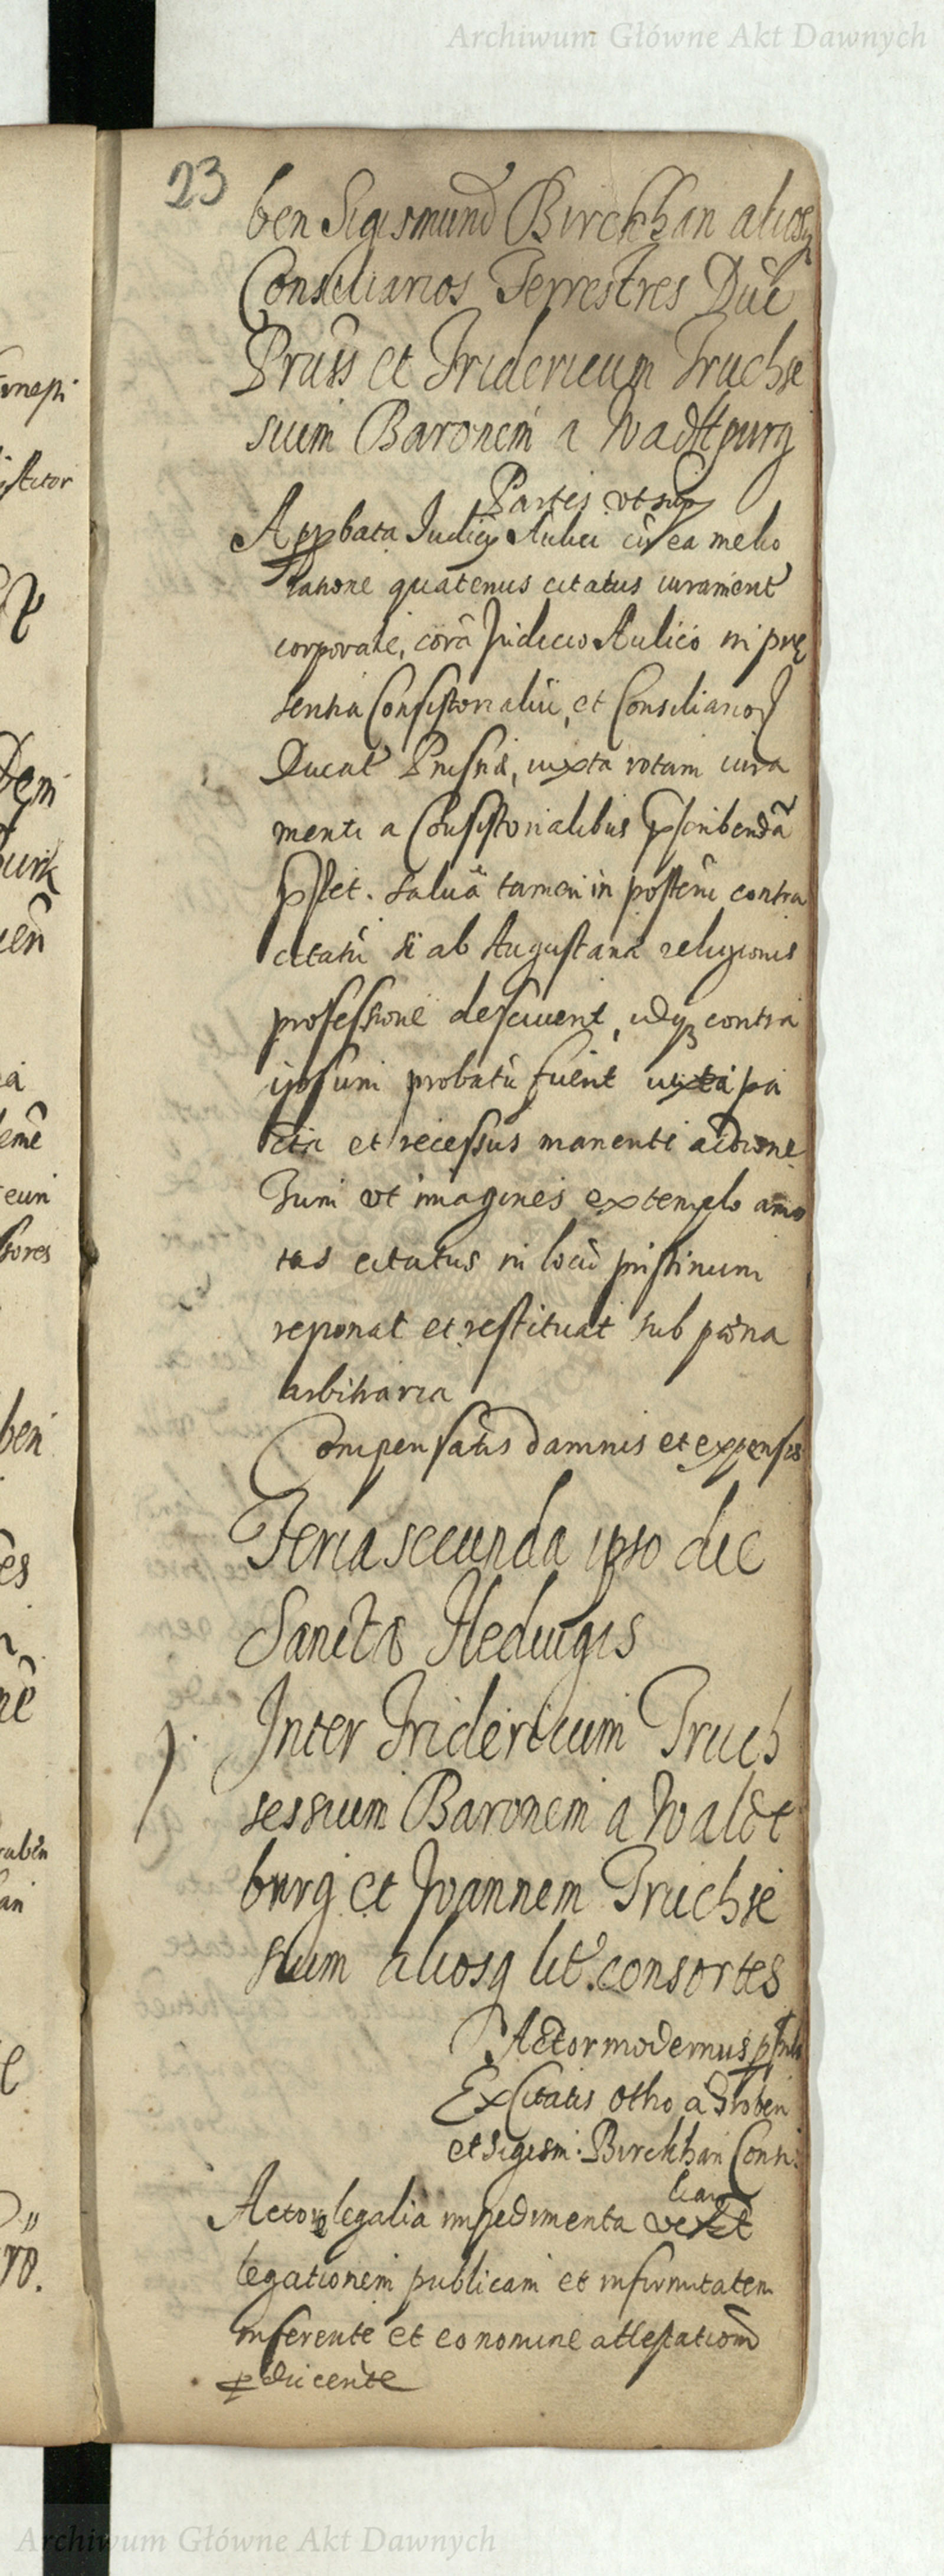 Archiwum Główne Akt Dawnych
23
ben Sigismund Birckhan aliosq
Consiliarios Terrestres Duc
Pruss et Fridericum Truchse
sium Baronem a Waldtpurg
Partes ut sup
Approbata Judicÿ Aulici cũ ea melio
ratione quatenus citatus iurament
corporale, corã Judicio Aulico in prę
sentia Consistorialiũ, et Consiliarioꝝ
Ducat Prussiæ, iuxta rotam iura
menti a Consistorialibus pscribendã
pstet. Salvã tamen in posterũ contra
citatũ si ab Augustana religionis
professione desciverit, idq contra
ipsum probatũ fuerit iuxta pa
cta et recessus manenti actione
Tum ut imagines extemplo amo
tas citatus in locũ pristinum
reponat et restituat sub pœna
arbitraria
Compensatis damnis et expensis
Feria secunda ipso die
Sanctæ Heduigis
Inter Fridericum Truch
sessium Baronem a Waldt
burg et Joannem Truchse
sium aliosq lit consortes
Actor modernus psens
Ex citatis Otho a Groben
et Sigism: Birckhan Consi
liar
Actore legalia impedimenta
legationem publicam et infirmitatem
inferente et eo nomine attestationẽ
pducente
Archiwum Główne Akt Dawnych